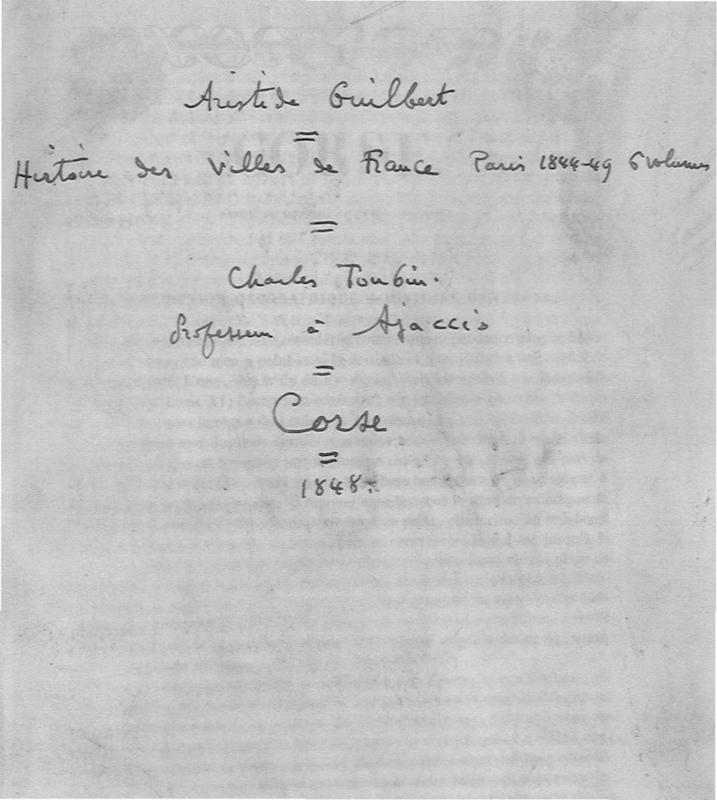 Aristide Guilbert
=
Histoire des Villes de France Paris 1844-49 6 volumes
=
Charles Toubin.
Professeur à Ajaccio
=
Corse
=
1848.